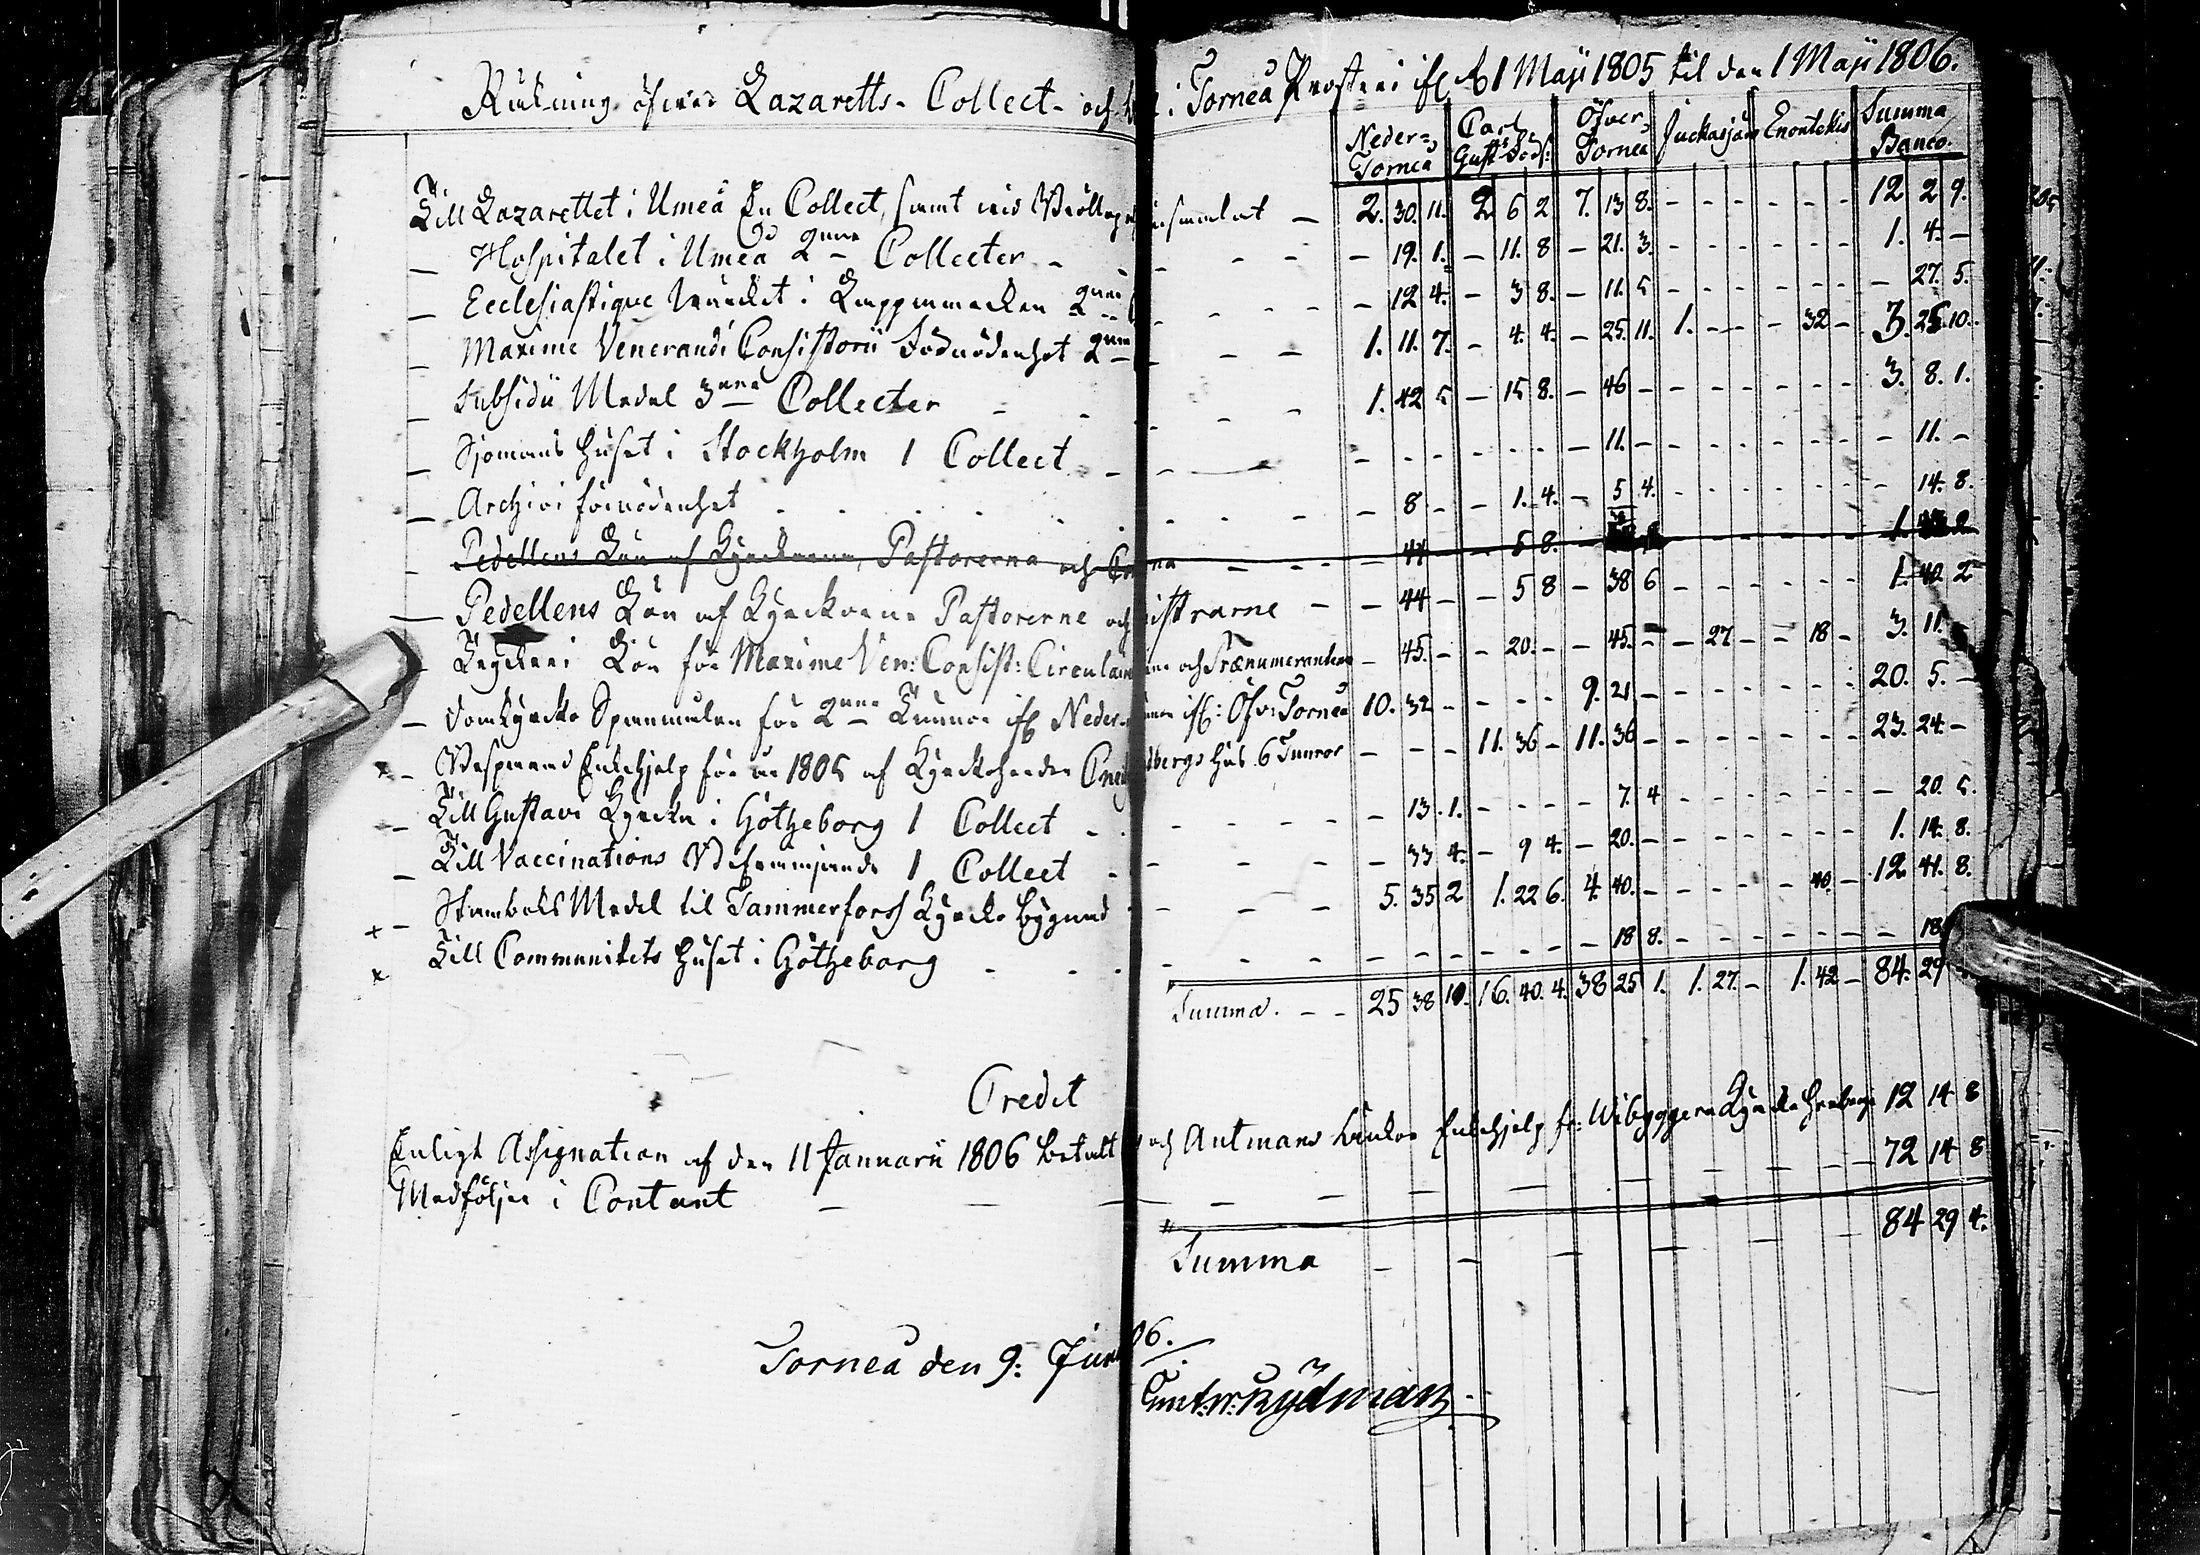 Räkning öfwer Lazaretts- Collect- och i Torneå Prosteri ifr. d. 1 Maji 1805 til den 1 Maji 1806.
Neder- Torneå Carl Gust: Söd: Öfver Torneå Juckasjärf Enontekis Summa Banco.
Till Lazarettet i Umeå En Collect, samt wid Bröllop insamlat — 2. 30. 11. 2 6 2 7. 13 8. - - - - - - 12 2 9.
— Hospitalet i Umeå 2ne Collecter - - - - — 19. 1. — 11. 8 — 21. 3. - - - - - - 1. 4. —
— Ecclesiastique Wärcket i Lappmarcken 2ne - - - - — 12 4. — 3 8. — 11. 5 - - - - - - — 27. 5.
— Maxime Venerandi Consistorii Nödwändighet 2ne - - — 1. 11. 7. - 4. 4. — 25. 11. 1. - - - 32 - 3. 25. 10.
— Subsidii Medel 3ne Collecter - - - - 1. 42 5 — 15 8. — 46 - - - - - - - 3. 8. 1.
— Sjömans Huset i Stockholm 1 Collect - - — - - - - - - — 11. - - - - - - - - 11. -
— Archivi förnödenhet - - - - - 8 - - 1. 4. - 5 4. - - - - - - - 14. 8.
— Pedellens Lön af Kyrckorna, Pastorerna och - - - 44 - - 5 8. - 1.
— Pedellens Lön af Kyrckorne Pastorerne och istrarne - - 44 - - 5 8 - 38 6 - - - - - - 1. 40. 2
— Tryckeri Lön för Maxime Ven: Consist: Circulairerne och Prænumeranterne - 45. - - 20. - - 45. - - 27 - - 18 - 3. 11. -
— Domkyrko Spannmålen för 2ne Tunnor ifr. Neder- ifr: Öfv: Torneå 10. 32 - - - - 9. 21 - - - - - - - 20. 5. -
x — Enkehjelp för år 1805 af Kyrckoherden bergs Hus 6 Tunnor - - - 11. 36 - 11. 36 - - - - - - - 23. 24. -
— Till Gustavi Kyrcka i Götheborg 1 Collect - - - - — 13. 1. - - - - 7. 4 - - - - - - — 20. 5.
— Till Vaccinations Befrämjande 1 Collect - - - - — 33 4. - 9 4. — 20. - - - - - - - 1. 14. 8.
x — Stamboks Medel til Tammerfors Kyrcko Bygnad - - - 5. 35 2 1. 22 6. 4. 40. - - - - - 40. - 12 41. 8.
x Till Communitets Huset i Götheborg - - - - - - - - - - - - 18 8. - - - - - - - 18
Summa. - - 25 38 10. 16. 40. 4. 38 25 1. 1. 27. - 1. 42 - 84. 29
Credit
Enligt Assignation af den 11 Januarii 1806 betalt och Antmans Enckor Enkehjelp fr: Wibyggerå Kyrcko Herberge 12 14 8
Medföljer i Contant — — — — — — — 72 14 8
Summa — — — — — 84 29 4.
Torneå den 9: Junii 06.
Rydman.